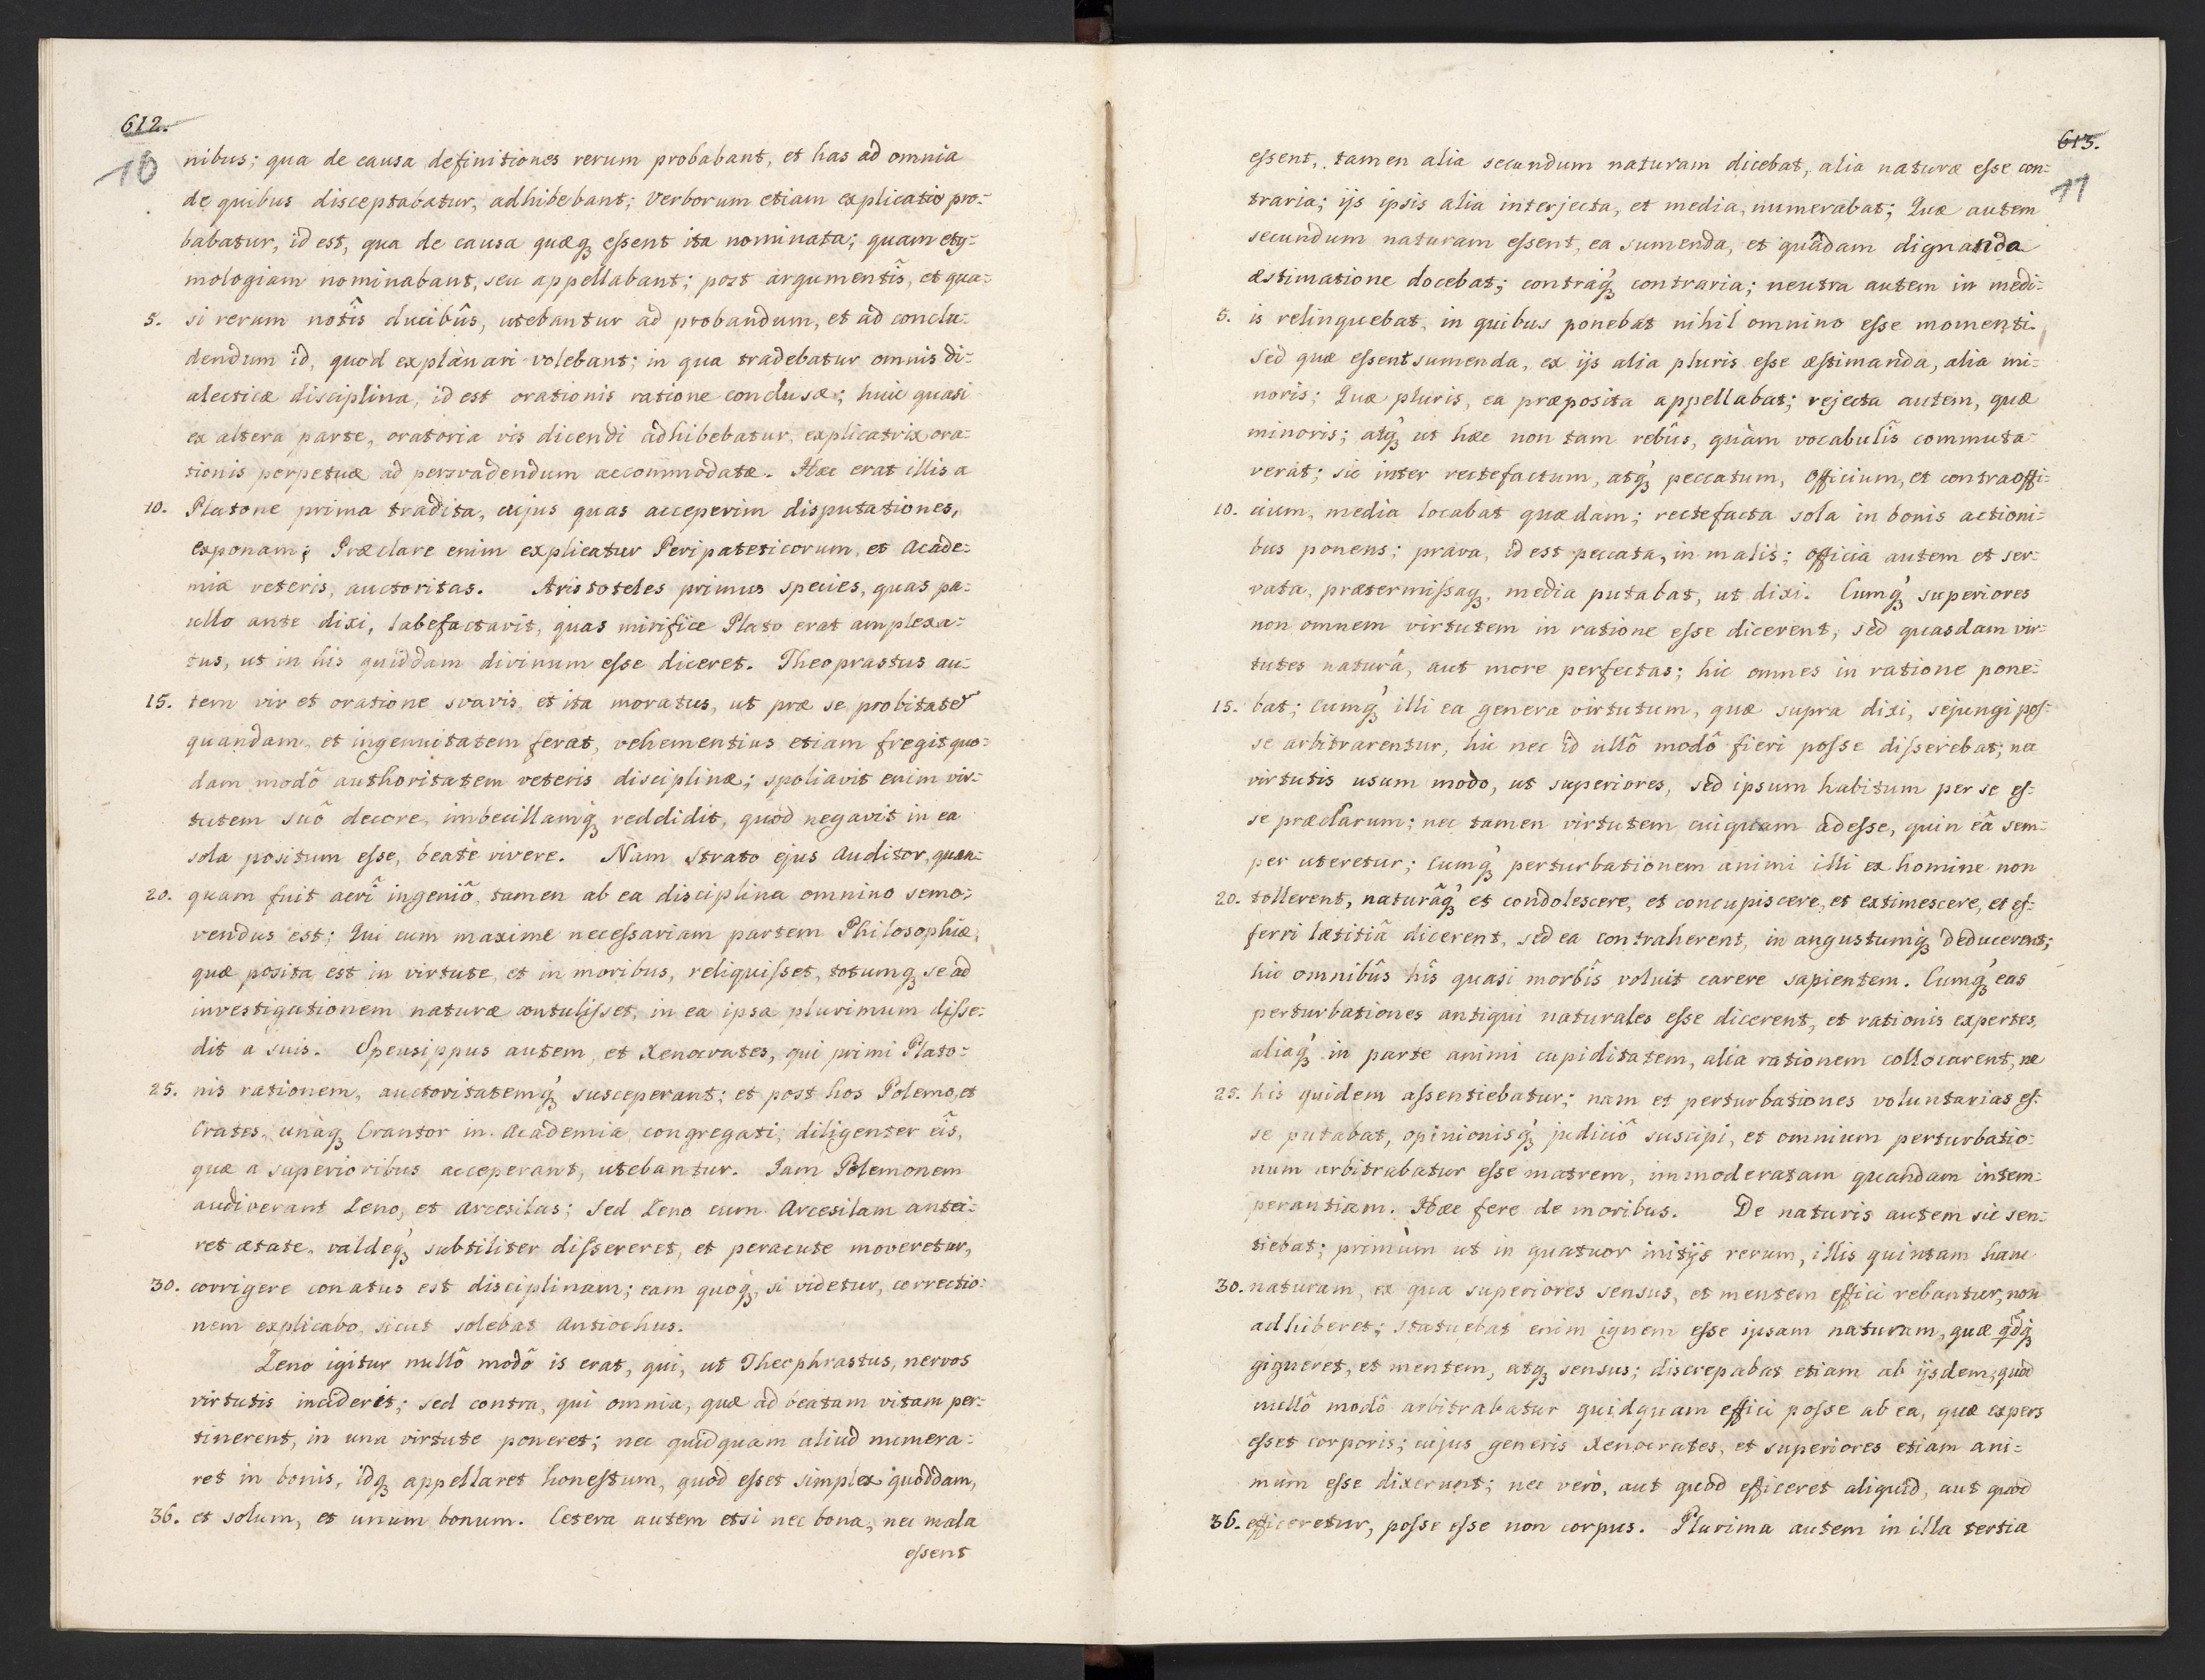 612.
10
nibus; qua de causa definitiones rerum probabant, et has ad omnia
de quibus disceptabatur, adhibebant; Verborum etiam explicatio pro:
babatur, id est, qua de causa quæq́ʒ eſsent ita nominata; quam ety:
mologiam nominabant, seu appellabant; post argumentîs, et qua:
5. si rerum notîs ducibûs, utebantur ad probandum, et ad conclu:
dendum id, quod explànari volebant; in qua tradebatur omnis di:
alecticæ disciplina, id est orationis ratione conclusæ; huic quasi
ex altera parte, oratoria vis dicendi adhibebatur, explicatrix ora:
tionis perpetuæ ad persvadendum accommodatæ. Hæc erat illis a
10. Platone prima tradita, cujus quas acceperim disputationes,
exponam; Præclare enim explicatur Peripateticorum, et Acade:
miæ veteris, auctoritas. Aristoteles primus species, quas pa:
ullo ante dixi, labefactavit, quas mirifice Plato erat amplexa:
tus, ut in his quiddam divinum eſse diceret. Theoprastus au:
15. tem vir et oratione svavis, et ita moratus, ut præ se probitatem
quandam, et ingenuitatem ferat, vehementius etiam fregit quo:
dam modô authoritatem veteris disciplinæ; spoliavit enim vir:
tutem suô decore, imbecillamq́ʒ reddidit, quòd negavit in ea
sola positum eſse, beatè vivere. Nam Strato ejus Auditor, quan:
20. quam fuit acrî ingeniô, tamen ab ea disciplina omnino semo:
vendus est; Qui cum maxime neceſsariam partem Philosophiæ,
quæ posita est in virtute, et in moribus, reliquiſset, totumqʒ se ad
investigationem naturæ contuliſset, in ea ipsa plurimum diſse:
dit a suis. Speusippus autem, et Xenocrates, qui primi Plato:
25. nis rationem, auctoritatemq́ʒ susceperant; et post hos Polemo, et
Crates, unàqʒ Crantor in Academia congregati, diligenter eîs,
quæ a superioribus acceperant, utebantur. Jam Polemonem
audiverant Zeno, et Arcesilas; Sed Zeno cum Arcesilam antei:
ret ætate, valdeq́ʒ subtiliter diſsereret, et peracute moveretur,
30. corrigere conatus est disciplinam; eam quoq́ʒ, si videtur, correctio:
nem explicabo, sicut solebat Antiochus.
Zeno igitur nullô modô is erat, qui, ut Theophrastus, nervos
virtutis inciderit; sed contra, qui omnia, quæ ad beatam vitam per:
tinerent, in una virtute poneret; nec quidquam aliud numera:
ret in bonis, idqʒ appellaret honeſtum, quod eſset simplex quoddam,
36. et solum, et unum bonum. Cetera autem etsi nec bona, nec mala
eſsent
613.
11
eſsent, tamen alia secundum naturam dicebat, alia naturæ eſse con:
traria; ijs ipsis alia interjecta, et media, numerabat; Quæ autem
secundum naturam eſsent, ea sumenda, et quâdam dignanda
æstimatione docebat; contràq́ʒ contraria; neutra autem in medi:
5. is relinquebat, in quibus ponebat nihil omnino eſse momenti.
Sed quæ eſsent sumenda, ex ijs alia pluris eſse æſtimanda, alia mi:
noris; Quæ pluris, ea præposita appellabat; rejecta autem, quæ
minoris; atq́ʒ ut hæc non tam rebûs, quàm vocabulîs commuta:
verat; sic inter rectefactum, atq́ʒ peccatum, Officium, et contra offi:
10. cium, media locabat quædam; rectefacta sola in bonis actioni:
bus ponens; prava, id est peccata, in malis; Officia autem et ser:
vata, prætermiſsaqʒ, media putabat, ut dixi. Cumq́ʒ superiores
non omnem virtutem in ratione eſse dicerent, sed quasdam vir:
tutes naturâ, aut more perfectas; hic omnes in ratione pone:
15. bat; Cumq́ʒ illi ea genera virtutum, quæ supra dixi, sejungi poſ:
se arbitrarentur, hic nec id ullô modô fieri poſse diſserebat; nec
virtutis usum modo, ut superiores, sed ipsum habitum per se eſ:
se præclarum; nec tamen virtutem cuiquam adesse, quin eâ sem:
per uteretur; Cumq́ʒ perturbationem animi illi ex homine non
20. tollerent, naturâq́ʒ et condolescere, et concupiscere, et extimescere, et ef:
ferri lætitiâ dicerent, sed ea contraherent, in angustumq́ʒ deducerent;
hic omnibûs hîs quasi morbîs voluit carere sapientem. Cumq́ʒ eas
perturbationes antiqui naturales eſse dicerent, et rationis expertes,
aliaq́ʒ in parte animi cupiditatem, alia rationem collocarent, ne
25. his quidem aſsentiebatur; nam et perturbationes voluntarias eſ:
se putabat, opinionisq́ʒ judiciô suscipi, et omnium perturbatio:
num arbitrabatur eſse matrem, immoderatam quandam intem:
perantiam. Hæc fere de moribus. De naturis autem sic sen:
tiebat; primùm ut in quatuor initijs rerum, illis quintam hanc
30. naturam, ex qua superiores sensus, et mentem effici rebantur, non
adhiberet; statuebat enim ignem eſse ipsam naturam, quæ qdqʒ
gigneret, et mentem, atqʒ sensus; discrepabat etiam ab ijsdem, quòd
nullô modô arbitrabatur quidquam effici poſse ab ea, quæ expers
eſset corporis; cujus generis Xenocrates, et superiores etiam ani:
mum eſse dixerunt; nec verò, aut quòd efficeret aliquid, aut quod
36. efficeretur, poſse eſse non corpus. Plurima autem in illa tertia